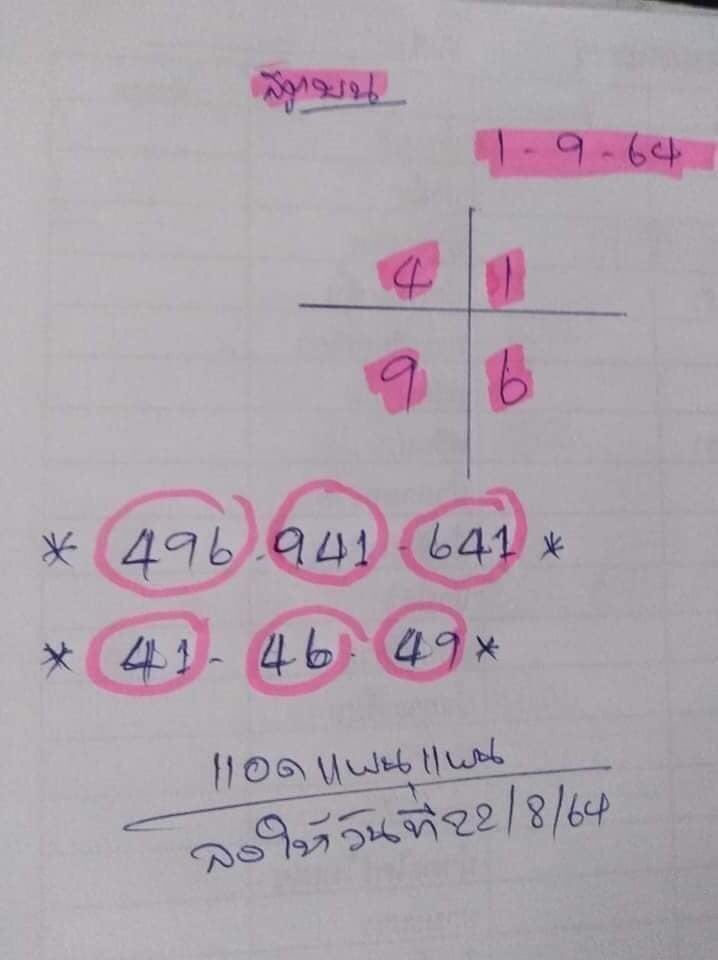 1-9-64
4 1
9 6
* 496-941-641 *
* 41-46-49 *
แอดแพนแพน
ลงให้วันที่ 22/8/64